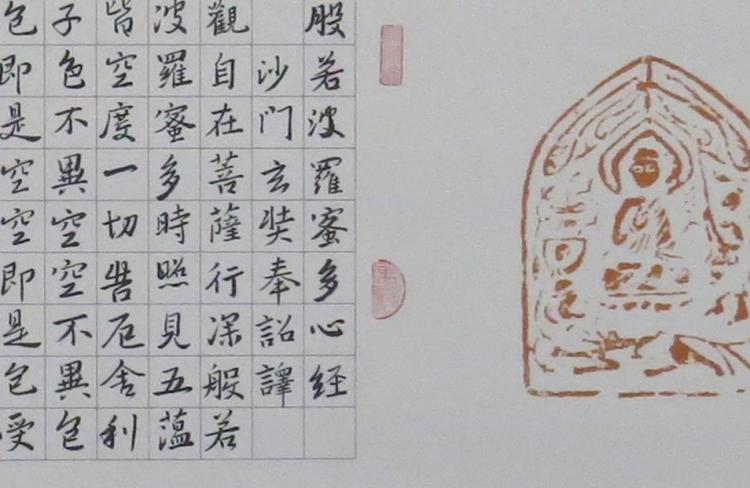 般若波羅蜜多心経
沙門玄奘奉詔譯
觀自在菩薩行深般若
波羅蜜多時照見五蘊
皆空度一切苦厄舍利
子色不異空空不異色
色即是空空即是色受